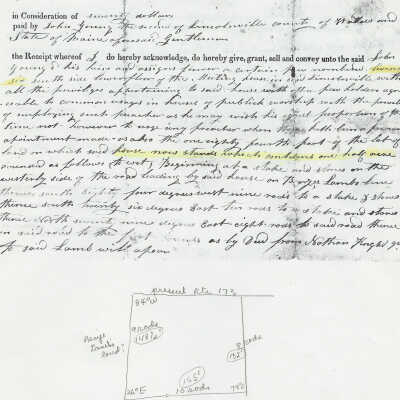 in Consideration of twenty dollars
paid by John Young the second of Lincolnville county of Waldo and
State of Maine aforesaid Gentleman
the Receipt whereof I do hereby acknowledge, do hereby give, grant, sell and convey unto the said John
Young & his heirs and assigns forever a certain pew numbered twenty
six on the side of the Meeting house in Lincolnville with
all the privileges appertaining to said house with other pew holders agre-
eable to common usages in houses of publick worship with the privilege
of employing such preacher as he may wish his equal proportion of the
time not however to use any preacher when there hath been a previous
apointment made also the one eighty fourth part of the lot of
land on which said house now stands which contains one half acre
as follows to wit, Beginning at a stake and stones on the
westerly side of the road leading by said house on Lambs line
thence south eighty four degrees west nine rods to a stake & stones
thence south twenty six degrees East ten rods to a stake and stones
thence North seventy nine degrees East eight rods to said road thence
on said road to the first bounds as by Deed from Nathan Knight
to said Lamb will appear
present Rte 173
84° W
9 rods
148½
8 rods
132'
165'
10 rods
26° E
79°